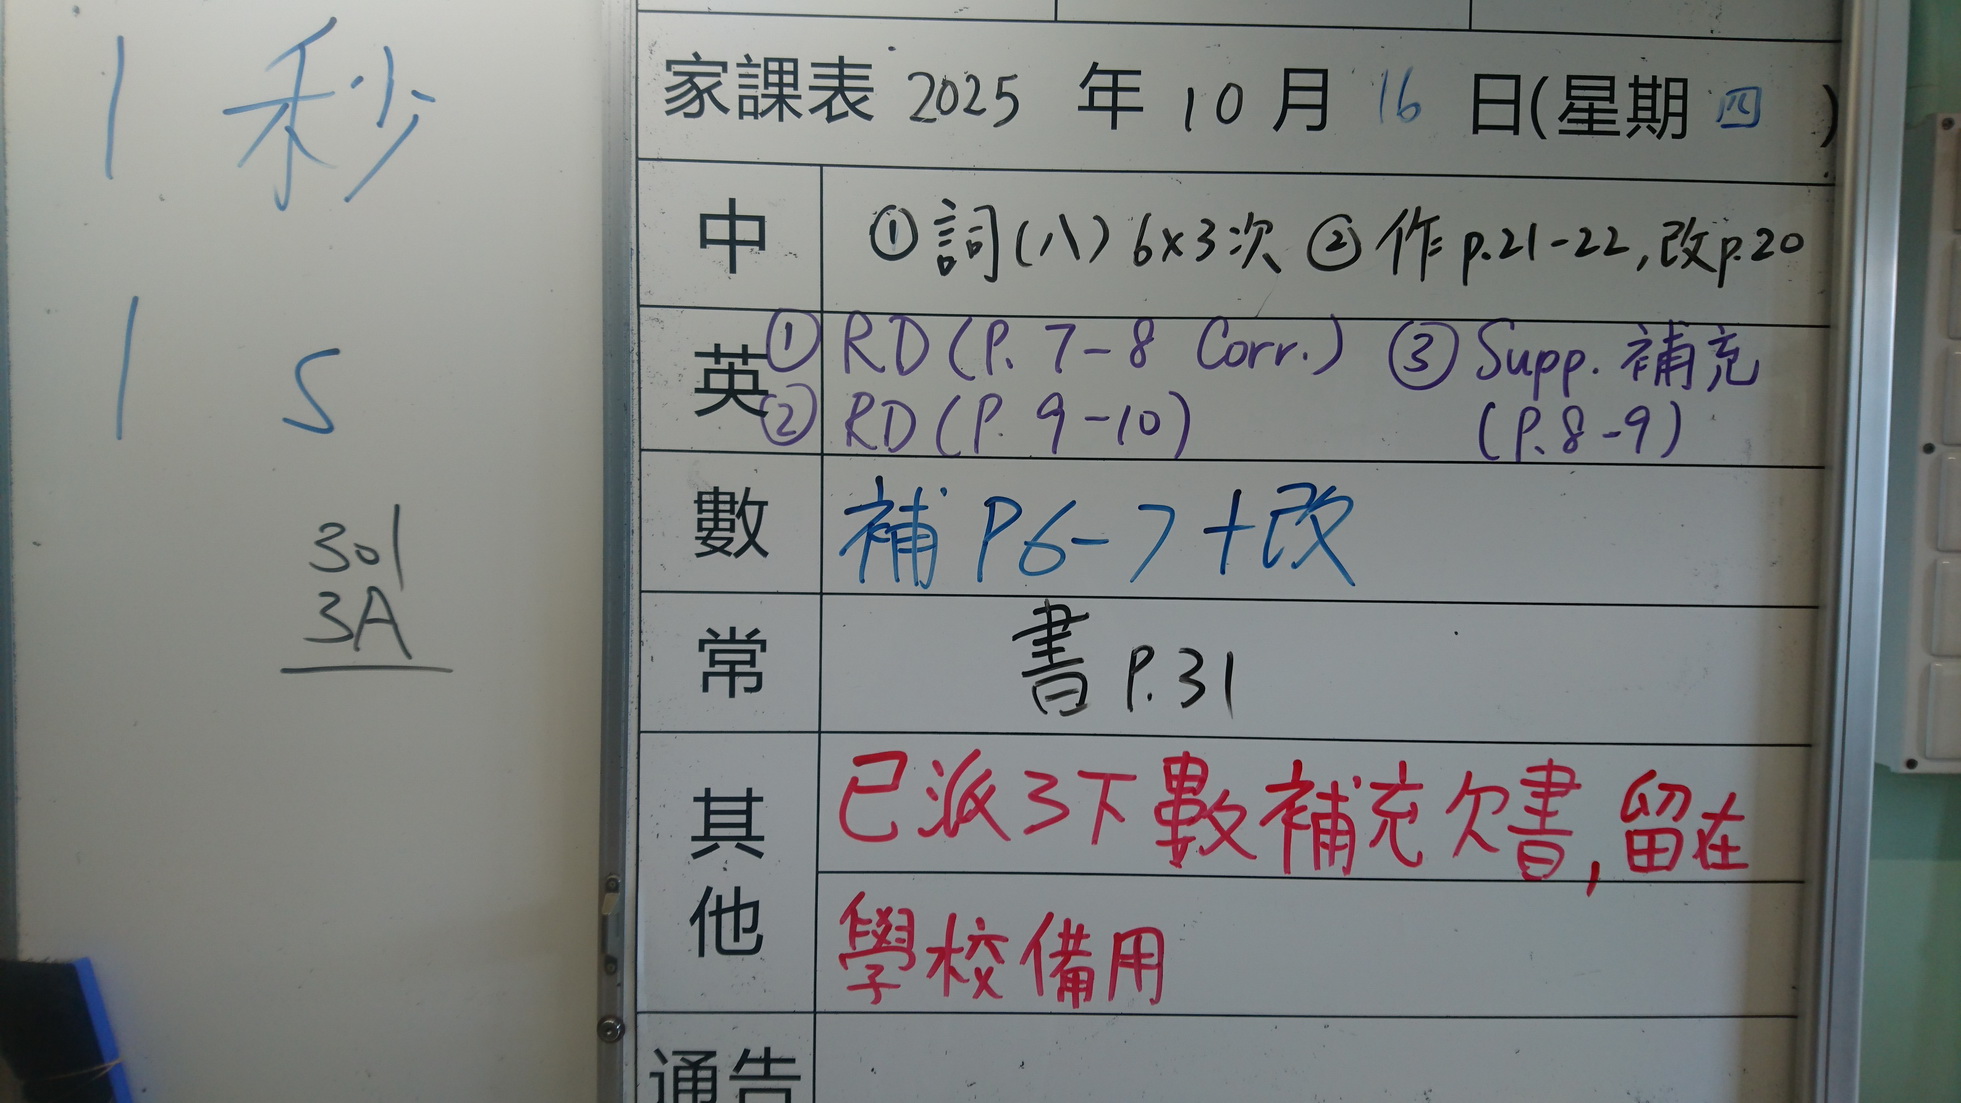 1 秒
1 s
301
3A
家課表 2025 年 10 月 16 日(星期 四 )
中 ①詞(八)6x3次 ②作 p.21-22,改p.20
英 ① RD (P. 7-8 Corr.) ③ Supp. 補充
② RD (P. 9-10) (P.8-9)
數 補 P6-7+改
常 書 P.31
其他 已派3下數補充欠書,留在
學校備用
通告